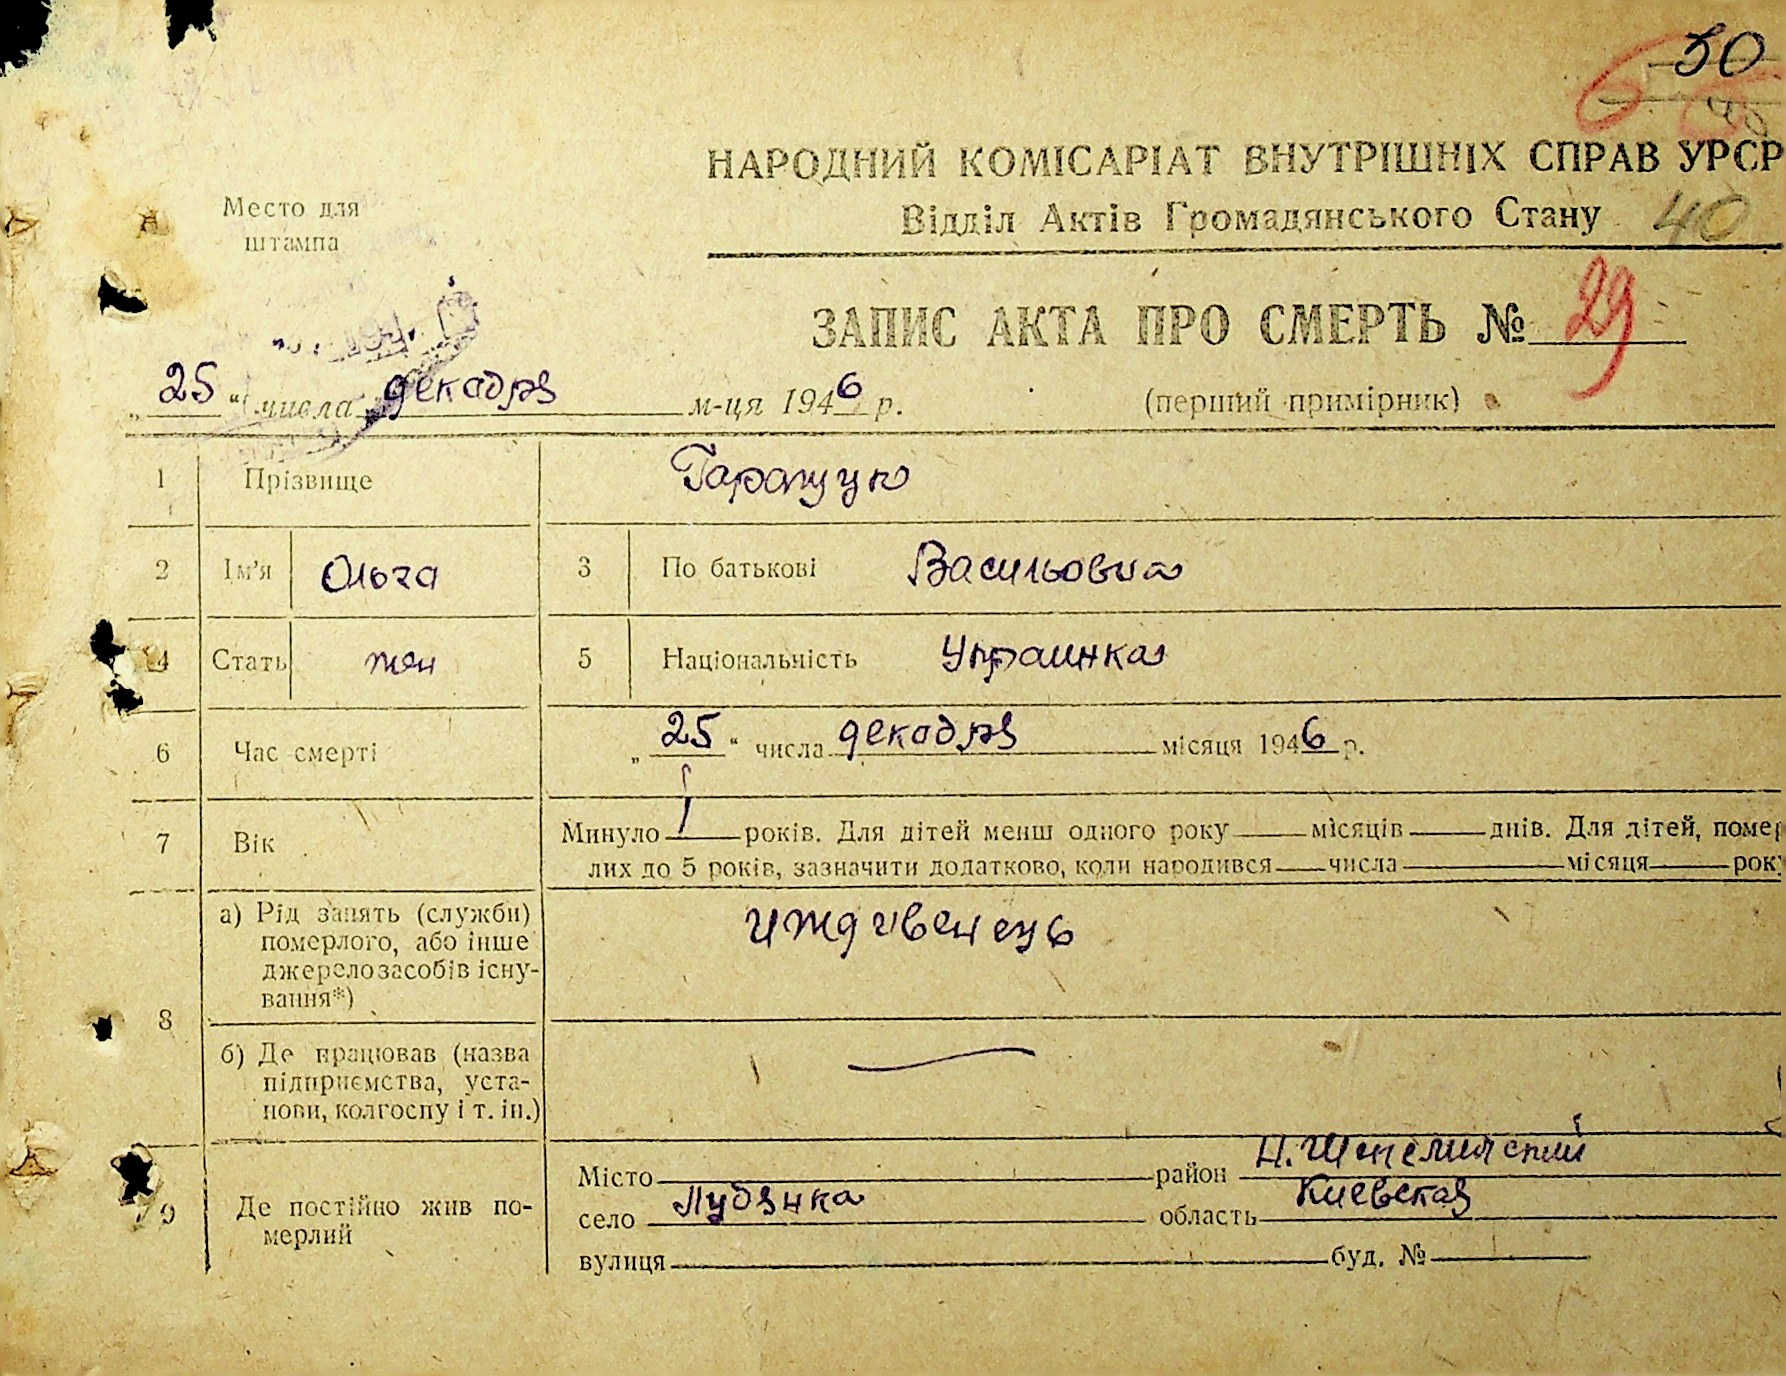 50
40
НАРОДНИЙ КОМІСАРІАТ ВНУТРІШНІХ СПРАВ УРСР
Відділ Актів Громадянського Стану
Место для
штампа
ЗАПИС АКТА ПРО СМЕРТЬ № 29
„25“ числа декабря м-ця 1946 р. (перший примірник)
1 Прізвище Гаращук
2 Ім'я Ольга 3 По батькові Васильовна
4 Стать жен 5 Національність Украинка
6 Час смерті „25“ числа декабря місяця 1946 р.
7 Вік Минуло 1 років. Для дітей менш одного року місяців днів. Для дітей, помер
лих до 5 років, зазначити додатково, коли народився числа місяця року
8 а) Рід занять (служби)
померлого, або інше
джерело засобів існу-
вання*)
иждивенець
б) Де працював (назва
підприємства, уста-
нови, колгоспу і т. ін.)
9 Де постійно жив по-
мерлий
Місто район Н. Шепелический
село Лубянка область Киевская
вулиця буд. №